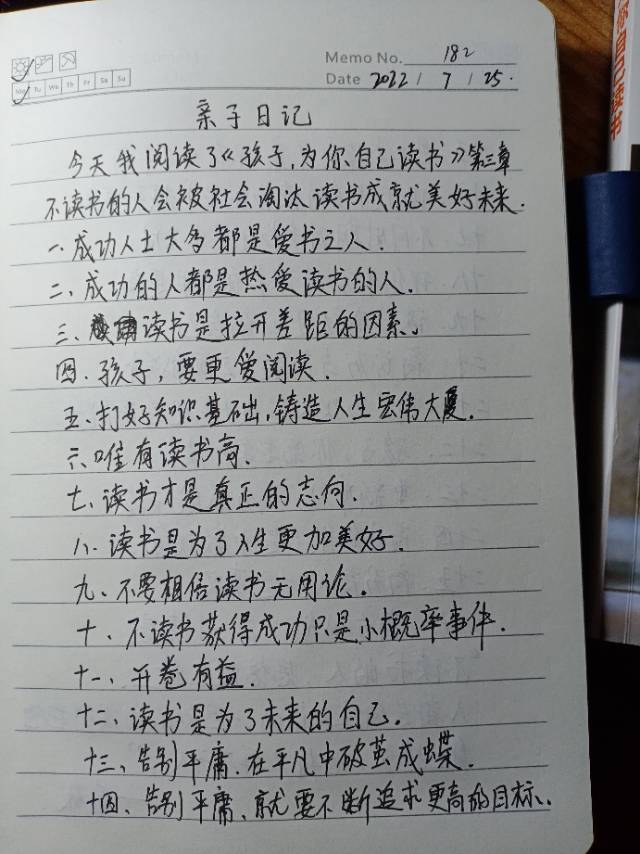 Memo No. 182
Mo Tu We Th Fr Sa Su
Date 2022 / 7 / 25.
亲子日记
今天我阅读了《孩子,为你自己读书》第三章
不读书的人会被社会淘汰读书成就美好未来.
一.成功人士大多都是爱书之人.
二、成功的人都是热爱读书的人.
三、读书是拉开差距的因素。
四.孩子,要更爱阅读.
五、打好知识基础,铸造人生宏伟大厦.
六、唯有读书高.
七、读书才是真正的志向.
八.读书是为了人生更加美好.
九、不要相信读书无用论.
十、不读书获得成功只是小概率事件.
十一、开卷有益.
十二、读书是为了未来的自己.
十三、告别平庸.在平凡中破茧成蝶.
十四、告别平庸、就要不断追求更高的目标.
你自己读书